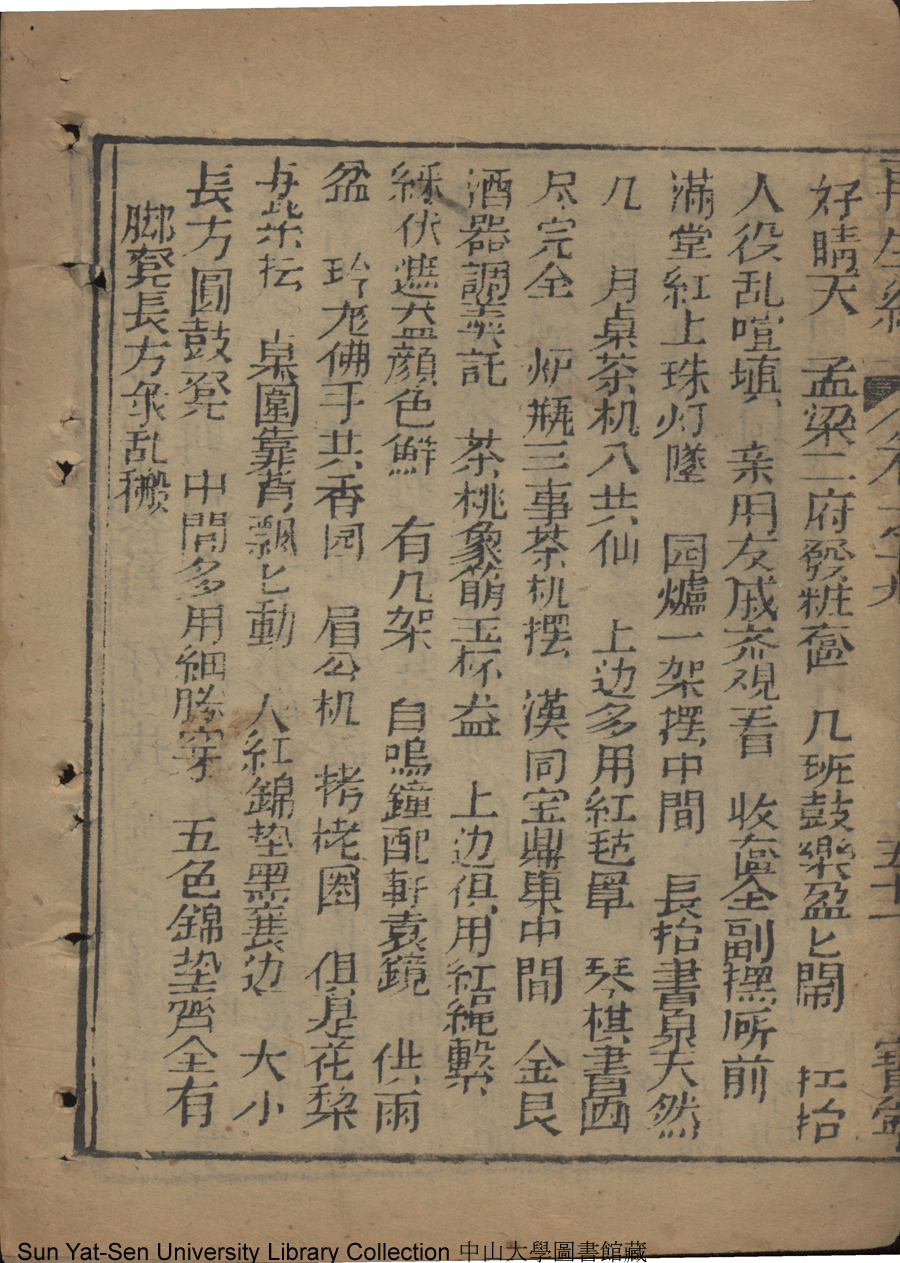 再生緣 卷之十九 五十一
好晴天 孟梁二府發粧奩 几班鼓樂盈匕鬧 扛抬
人役乱喧填 亲朋友戚齐观看 收奩全副摆所前
滿堂紅上珠灯墜 园爐一架摆中間 長抬書桌天然
几 月桌茶机八共仙 上边多用紅毡罩 琴棋書画
尽完全 炉瓶三事茶机摆 漢同宝鼎東中間 金艮
酒器調羹託 茶桃象筯玉杯益 上边俱用紅繩繫
綵伏遮盖顏色鮮 有几架 自鳴鐘配軒袁鏡 供雨
盆 玲尨佛手共香园 眉公机 栲栳圈 俱是花梨
与柴坛 桌圍靠背飄匕動 人紅錦墊黑襄边 大小
長方圓鼓凳 中間多用細滕穿 五色錦墊齊全有
脚凳長方众乱搬
Sun Yat-Sen University Library Collection 中山大學圖書館藏